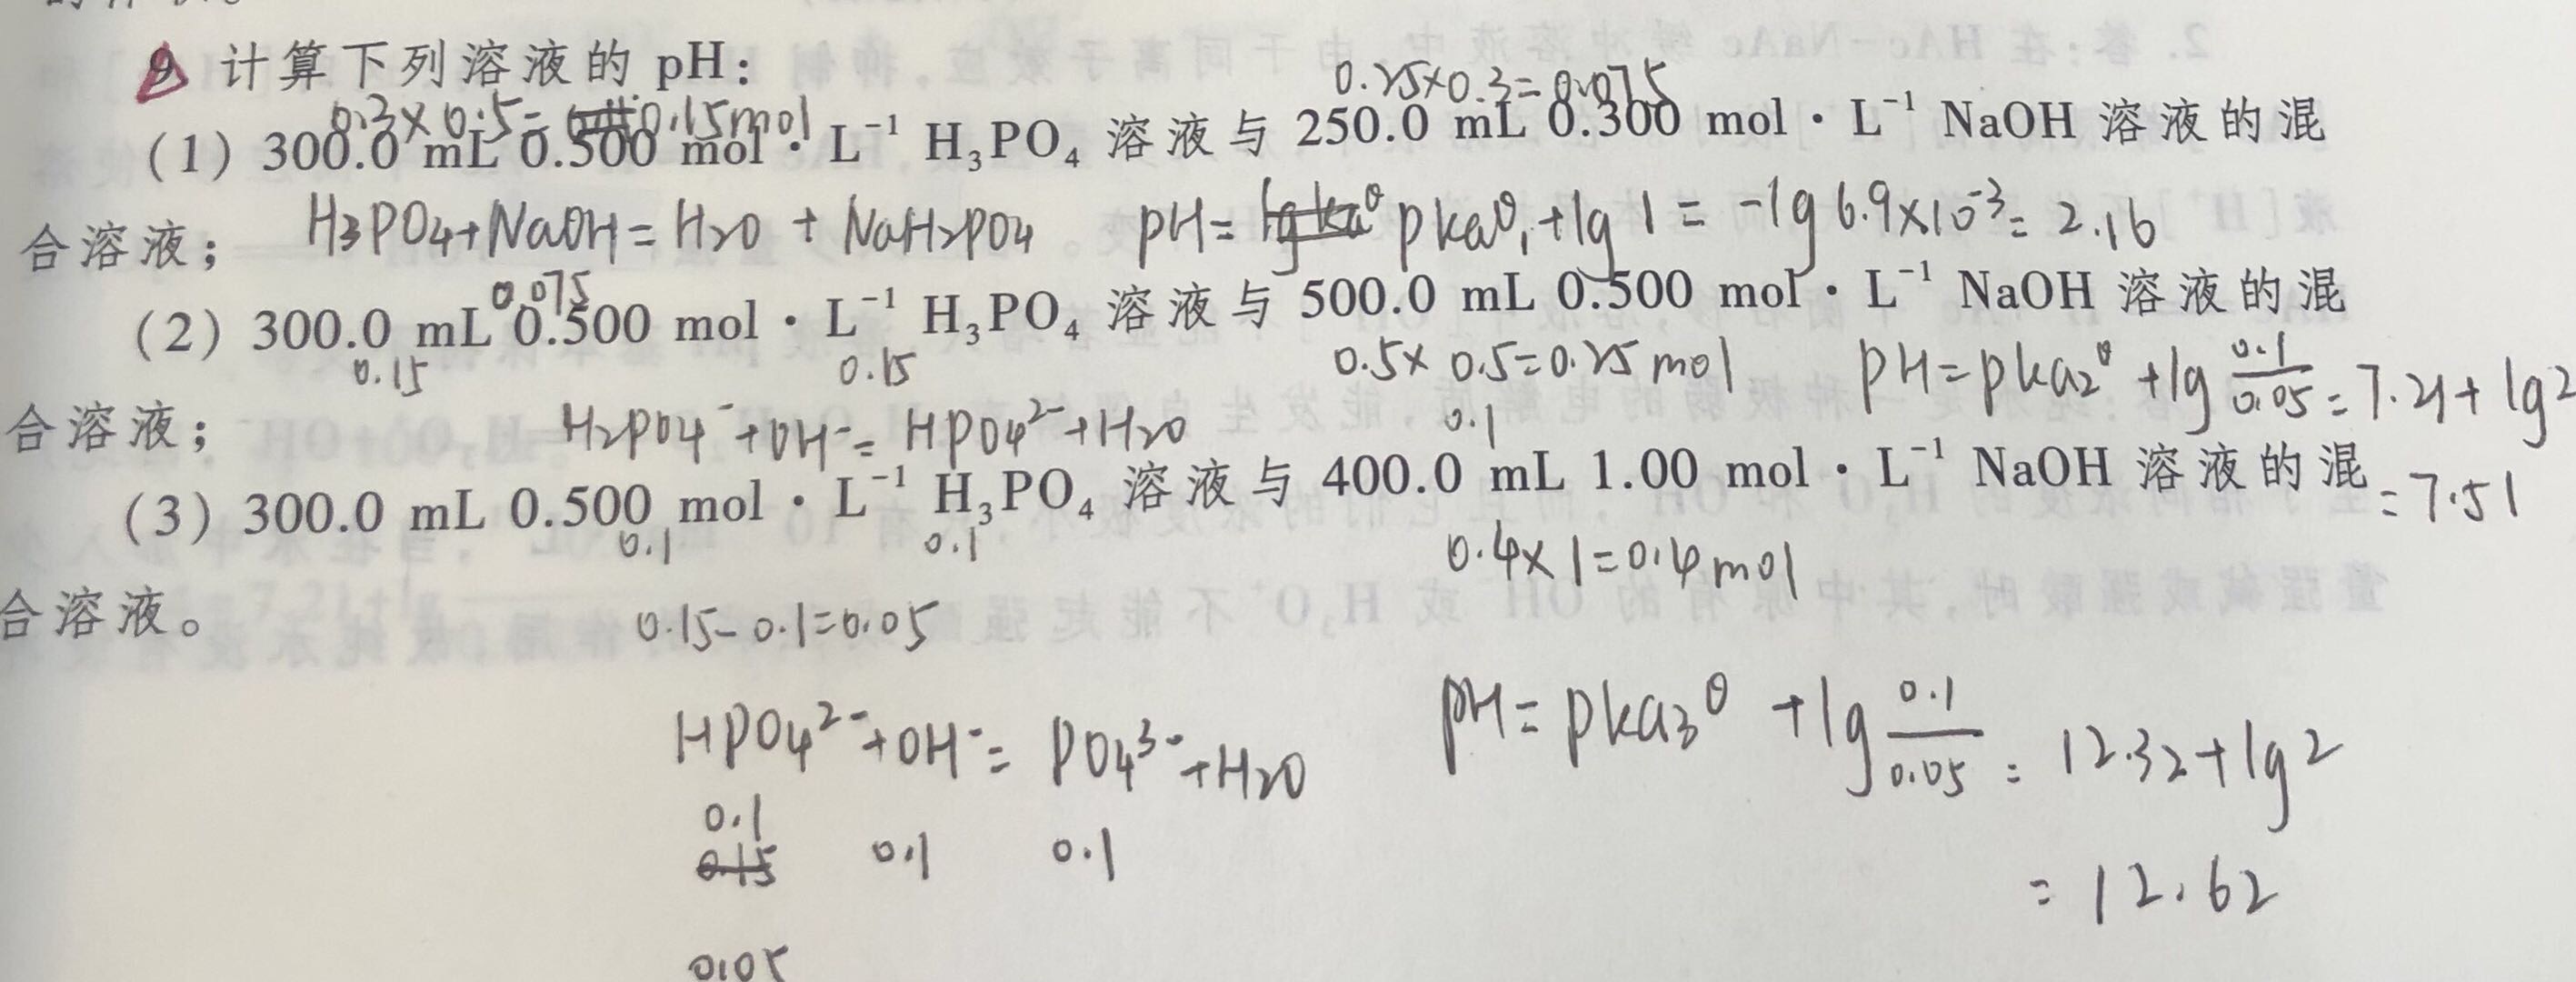 9 计算下列溶液的 pH：
0.25×0.3=0.075
0.3×0.5=0.15mol
（1）300.0 mL 0.500 mol·L⁻¹ H₃PO₄ 溶液与 250.0 mL 0.300 mol·L⁻¹ NaOH 溶液的混
合溶液； H₃PO₄+NaOH=H₂O+NaH₂PO₄ pH= pka₁θ+lg1=-lg6.9×10⁻³=2.16
0.075
（2）300.0 mL 0.500 mol·L⁻¹ H₃PO₄ 溶液与 500.0 mL 0.500 mol·L⁻¹ NaOH 溶液的混
0.15 0.15 0.5×0.5=0.25mol pH=pka₂θ+lg 0.1/0.05=7.21+lg2
合溶液； H₂PO₄⁻+OH⁻=HPO₄²⁻+H₂O 0.1
（3）300.0 mL 0.500 mol·L⁻¹ H₃PO₄ 溶液与 400.0 mL 1.00 mol·L⁻¹ NaOH 溶液的混 =7.51
0.1 0.1 0.4×1=0.4mol
合溶液。 0.15-0.1=0.05
HPO₄²⁻+OH⁻=PO₄³⁻+H₂O pH=pka₃θ+lg 0.1/0.05=12.32+lg2
0.1
0.15 0.1 0.1
=12.62
0.05